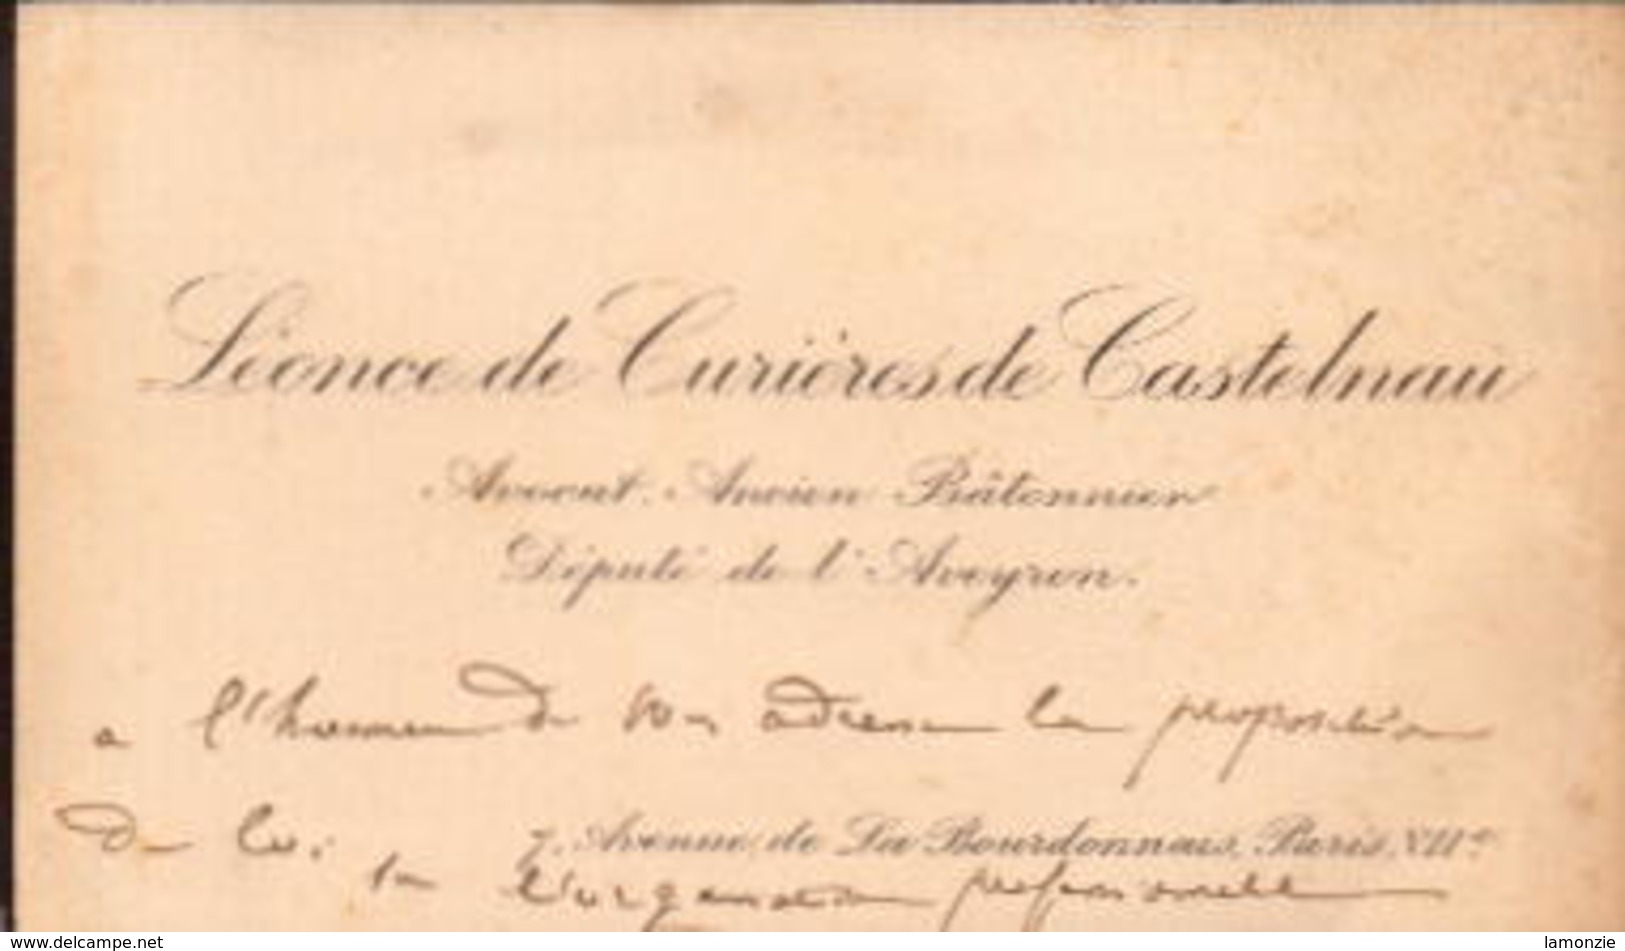 Léonce de Curières de Castelnau
Avocat. Ancien Bâtonnier
Député de l'Aveyron.
a l'honneur de vous adresser la proposition
de loi
7. Avenue de La Bourdonnais, Paris. VIIe
sur l'organisation professionnelle
www.delcampe.net
lamonzie